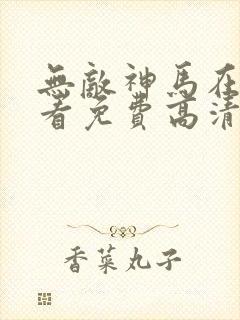 無敵神馬在
看免費高清
香菜丸子